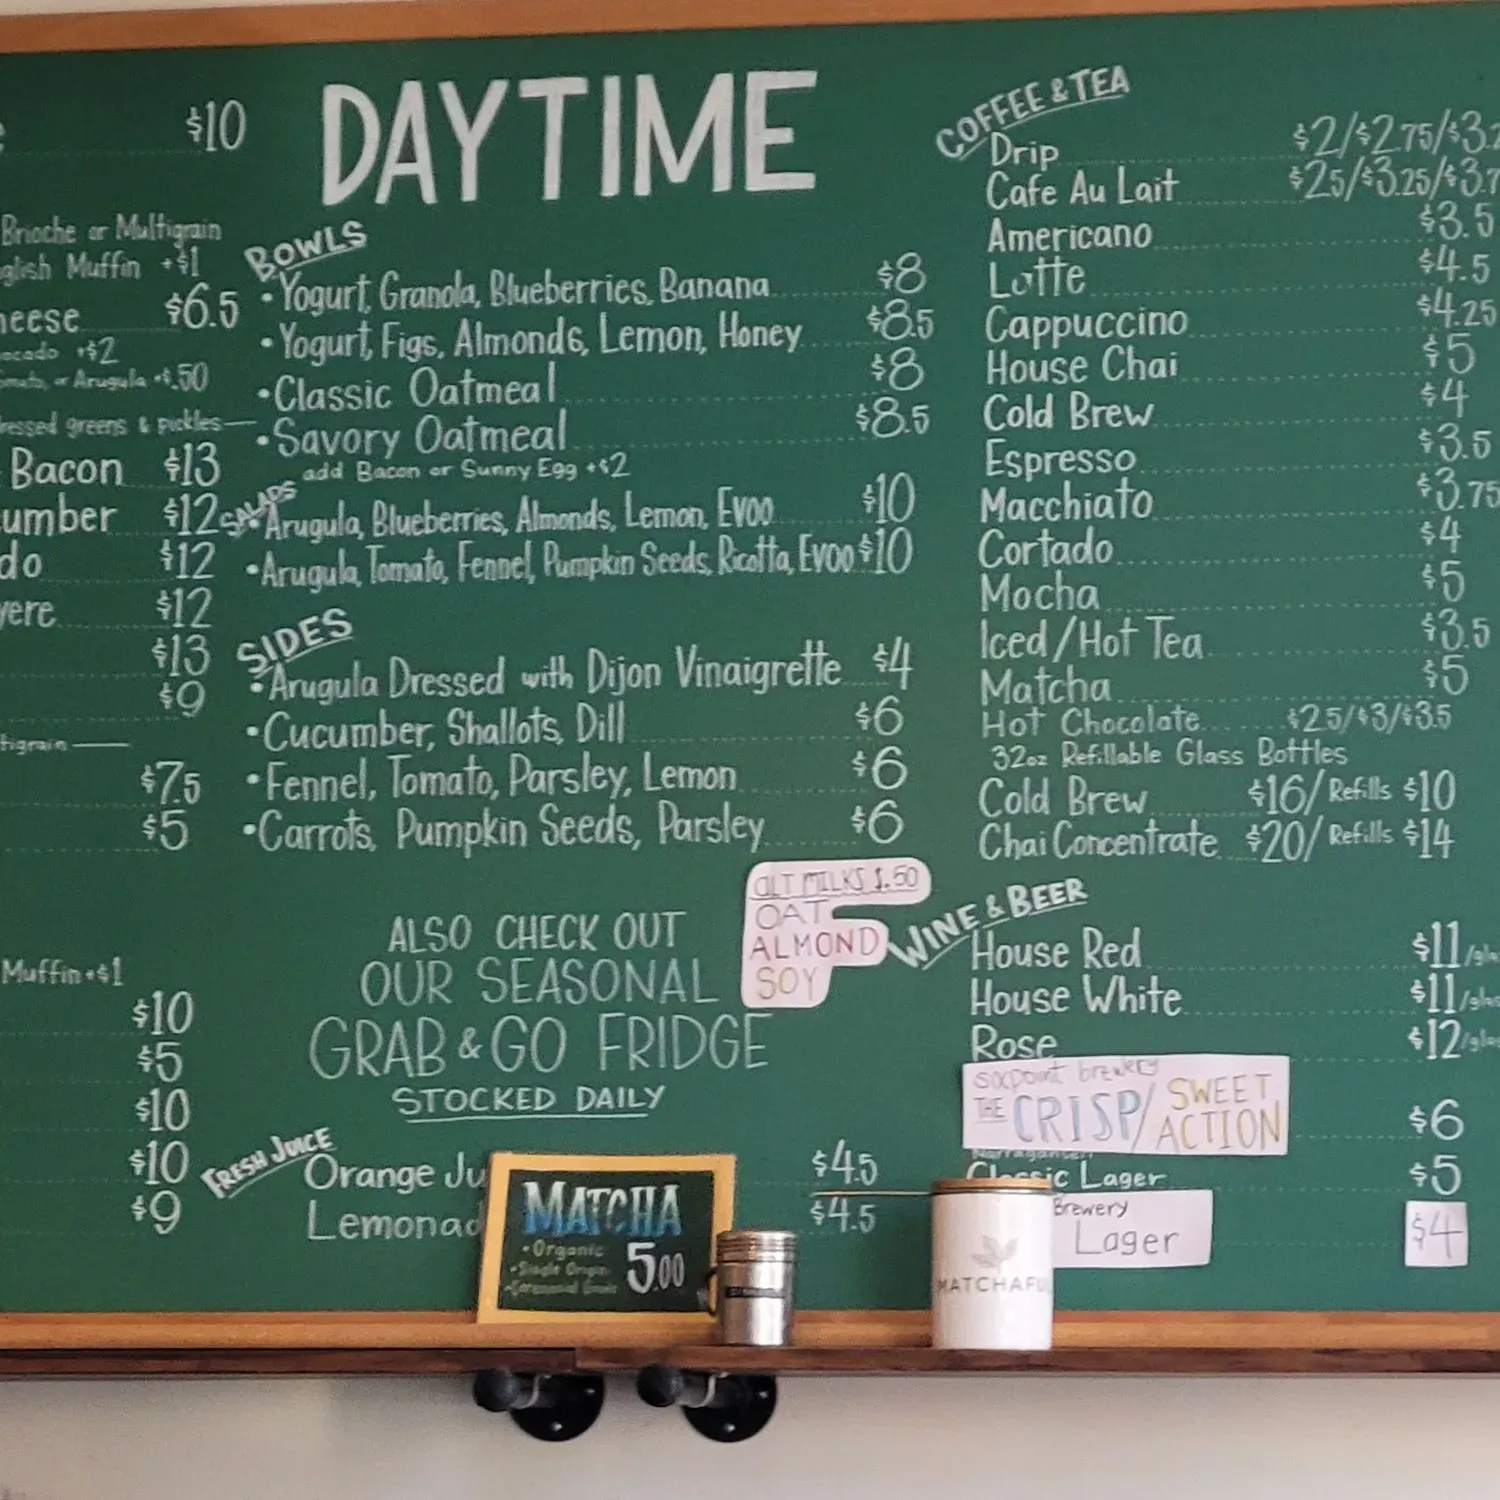 $10
Brioche or Multigrain
Muffin +$1
$6.5
+$2
or Arugula +$.50
greens & pickles
Bacon $13
$12
$12
$12
$13
$9
$7.5
$5
Muffin +$1
$10
$5
$10
$10
$9
DAYTIME
BOWLS
• Yogurt, Granola, Blueberries, Banana $8
• Yogurt, Figs, Almonds, Lemon, Honey $8.5
• Classic Oatmeal $8
• Savory Oatmeal $8.5
add Bacon or Sunny Egg +$2
SALADS
• Arugula, Blueberries, Almonds, Lemon, Evoo $10
• Arugula, Tomato, Fennel, Pumpkin Seeds, Ricotta, Evoo $10
SIDES
• Arugula Dressed with Dijon Vinaigrette $4
• Cucumber, Shallots, Dill $6
• Fennel, Tomato, Parsley, Lemon $6
• Carrots, Pumpkin Seeds, Parsley $6
ALSO CHECK OUT
OUR SEASONAL
GRAB & GO FRIDGE
STOCKED DAILY
ALT MILKS $.50
OAT
ALMOND
SOY
FRESH JUICE
Orange Ju $4.5
Lemonad $4.5
MATCHA
• Organic
• Single Origin
5.00
COFFEE & TEA
Drip $2/$2.75/$3.2
Cafe Au Lait $2.5/$3.25/$3.7
Americano $3.5
Latte $4.5
Cappuccino $4.25
House Chai $5
Cold Brew $4
Espresso $3.5
Macchiato $3.75
Cortado $4
Mocha $5
Iced/Hot Tea $3.5
Matcha $5
Hot Chocolate $2.5/$3/$3.5
32oz Refillable Glass Bottles
Cold Brew $16/ Refills $10
Chai Concentrate $20/ Refills $14
WINE & BEER
House Red $11
House White $11
Rose $12
sixpoint brewery
THE CRISP/ SWEET ACTION $6
Narragansett
Classic Lager $5
Brewery
Lager $4
MATCHAFU